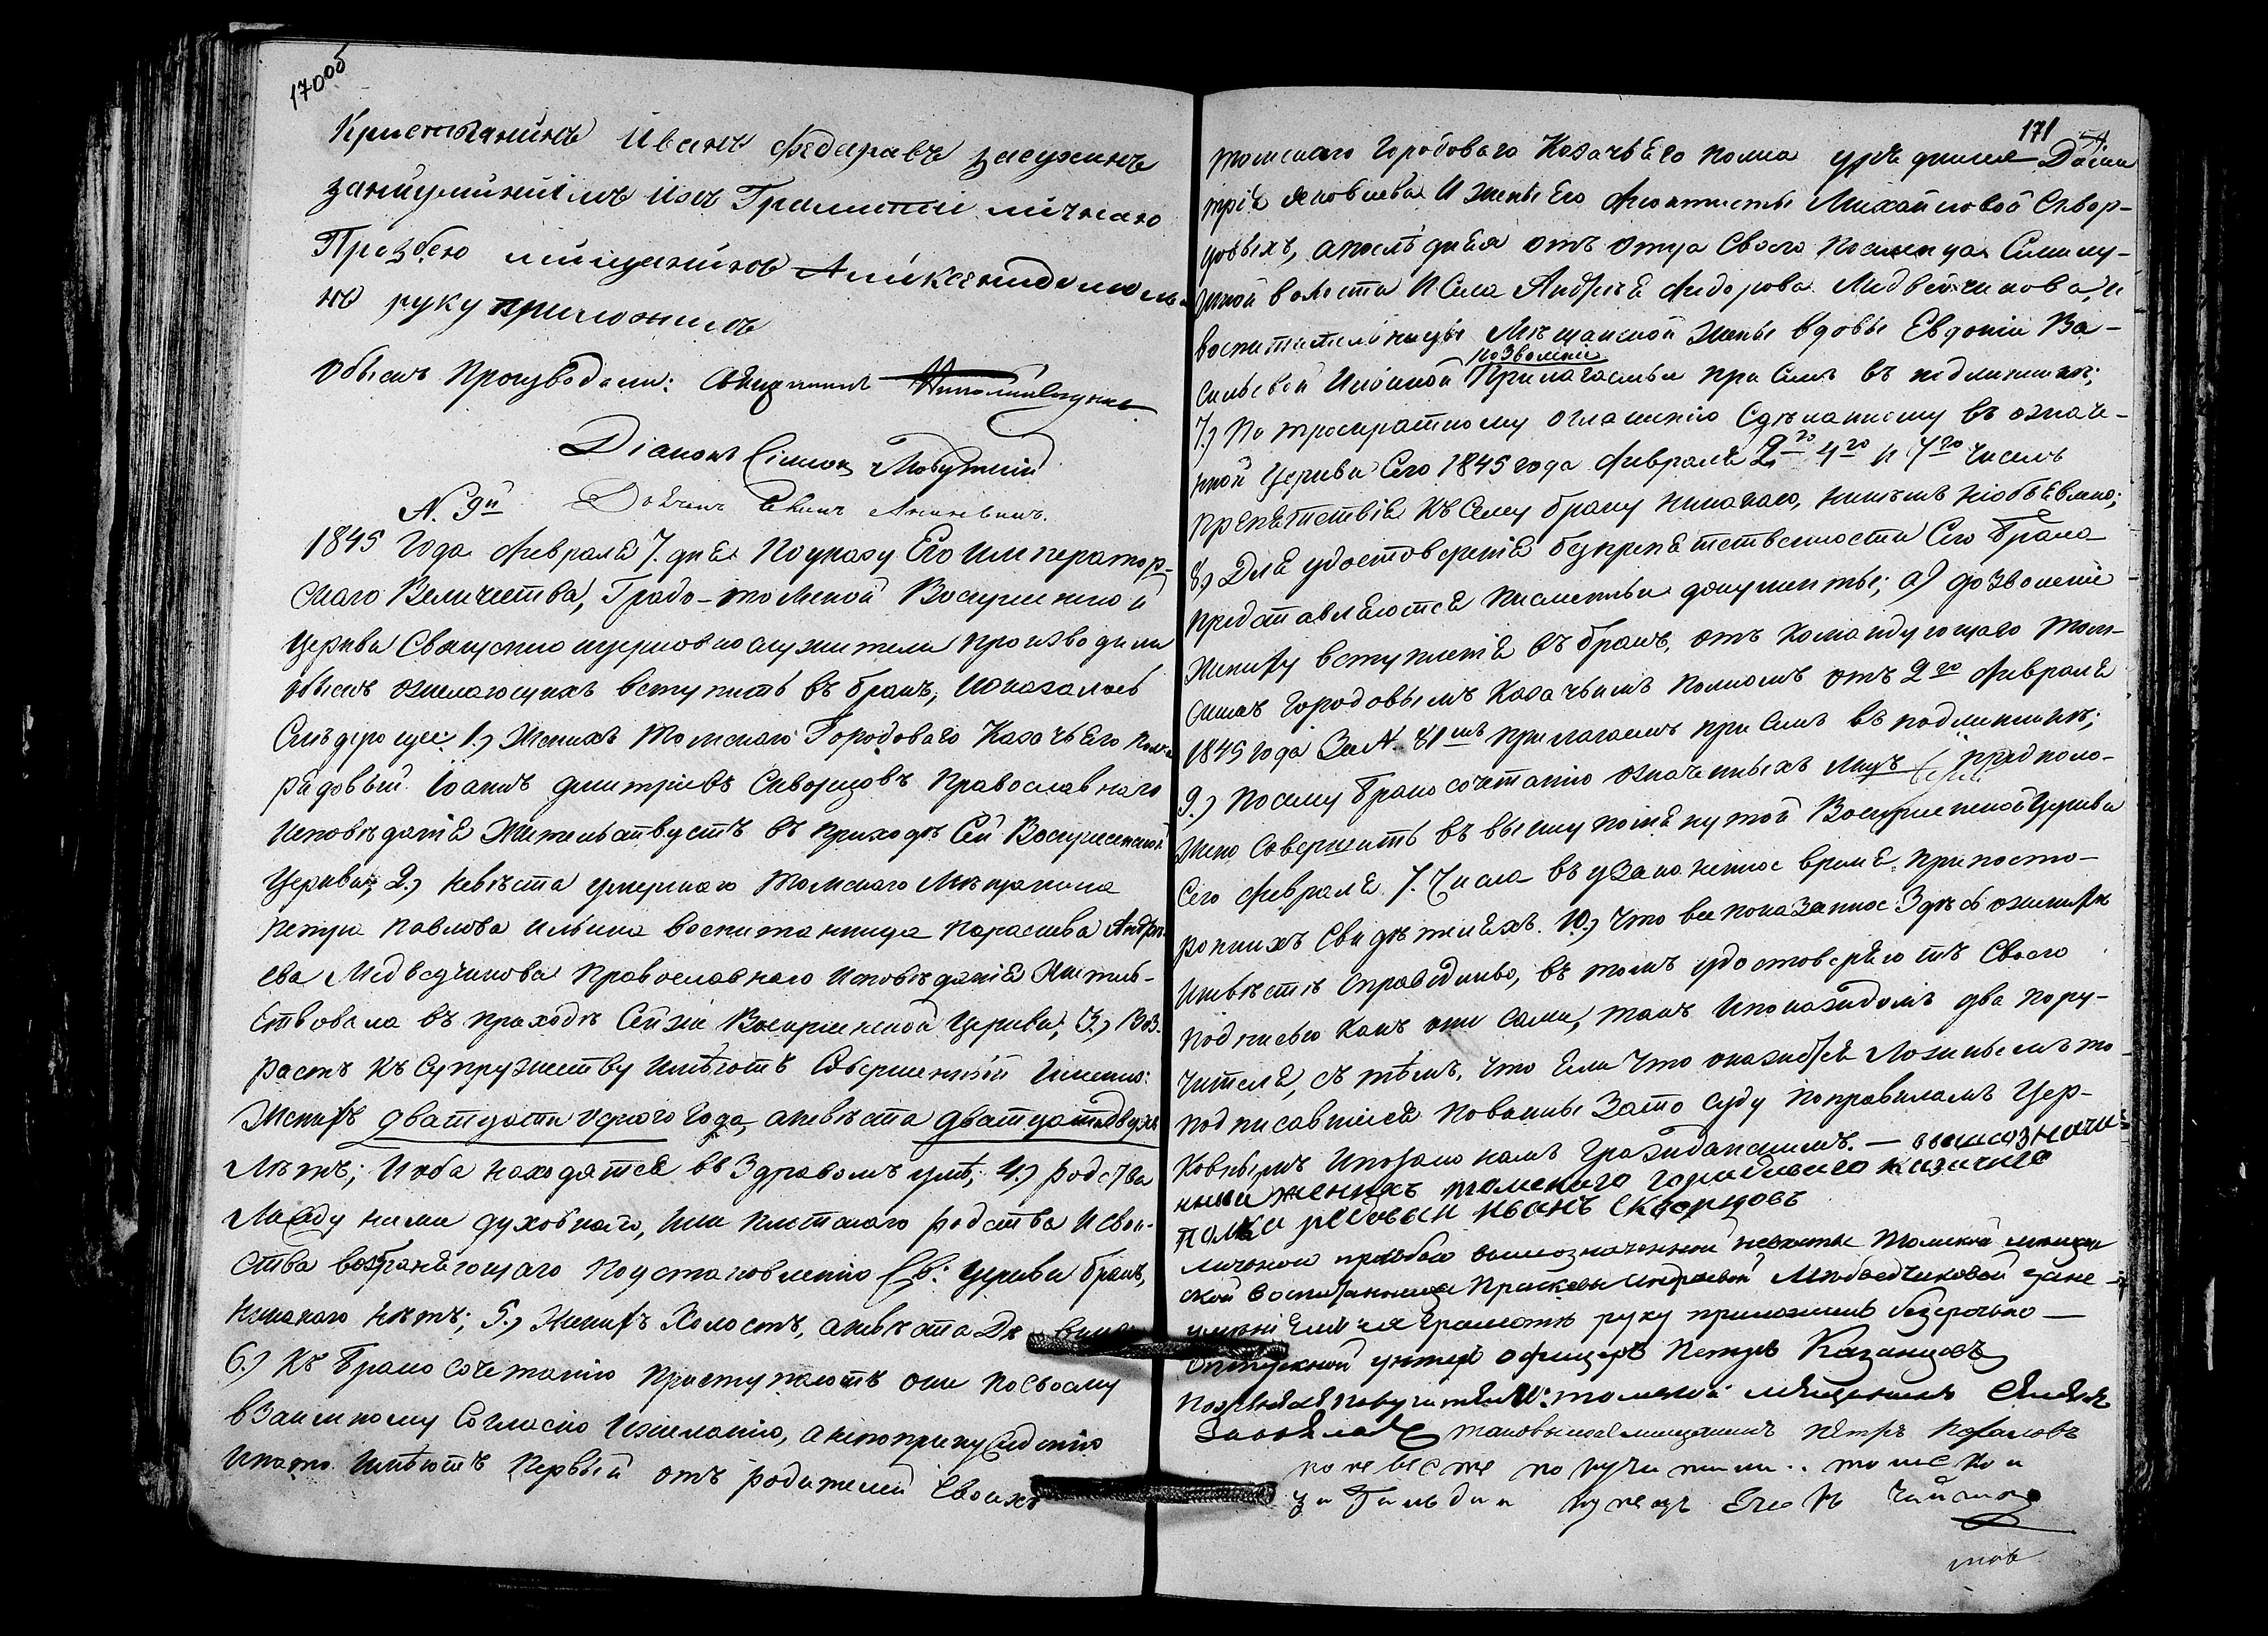 170об
Кристьянинъ Иванъ Федаравъ
занеуминиiмъ ихъ Грамоти личнаю
Прозбою мещанинов
но руку приложилъ
Обыскъ Производили: Священникъ
Дiаконъ Симеон
N. 9й Дьячекъ
1845 Года Февраля 7. дня По указу Его Император-
скаго Величества, Градо-томской Воскресенской
Церкви Священноцерковнослужители производили
обыскъ о желающихъ вступить въ бракъ, и оказалось
Следующее: 1.) Женихъ Томскаго Городоваго Казачьяго Полка
рядовый Iоаннъ Дмитрiевъ Скворцовъ Православнаго
исповѣданiя Жительствуетъ въ приходѣ Сей Воскресенской
Церкви; 2.) невѣста умершаго Томскаго Мѣщанина
Петра Павлова Ильина воспитанница Параскева Андре-
ева Медведчикова Православнаго Исповѣданiя Житель-
ствовала въ приходѣ Сей же Воскресенской Церкви; 3.) Воз-
растъ къ супружеству имѣютъ Совершенный Именно:
Женихъ дватцати одного Года, а невѣста дватцати двухъ
Лѣтъ; И оба находятся въ Здравомъ умѣ; 4.) родства
Между ними духовнаго, или плотскаго родства и свой-
ства возбраняющаго По установленiю Св: Церкви бракъ,
никакого нѣтъ; 5.) Женихъ Холостъ, а невѣста Дѣвица
6.) Къ Бракосочетанiю Приступаютъ они по своему
взаимному Согласiю и желанiю, а не по принужденiю
и на то имѣютъ Первый отъ родителей Своихъ
171
томскаго Городоваго Казачьяго полка урядника Дми-
трiя Яковлева и жены его Михайловой Сквор-
цовыхъ, а послѣдняя отъ отца своего Поселенца
волости и Села Андрея Федорова Медведчикова, и
воспитательницы Мѣщанской Жены вдовы Евдокiи Ва-
позволенiе
сильевой Ильиной Прилагаемыя при семъ въ подлинникѣ;
7.) По троекратному оглашенiю Сдѣланному въ означе-
нной Церкви Сего 1845 года Февраля 2го 4го и 7го Чиселъ
препятствiя къ Сему браку никакого, никѣмъ не объявлено;
8.) Для удостоверенiя безпрепятственности Сего Брака
представляются писменныя документы; а) дозволенiе
Жениху вступленiя въ бракъ, отъ Командующаго Том-
скимъ Городовымъ Казачьимъ Полкомъ отъ 2го Февраля
1845 года За N. 81мъ прилагаемъ при семъ въ подлинникѣ;
9.) Посему Бракосочетанiю означенныхъ лицъ предполо-
жено Совершить въ вышеупомянутой Воскресенской Церкви
Сего Февраля 7. Числа въ узаконенное время при посто-
роннихъ Свидѣтеляхъ. 10.) Что все показанное Здѣсь о женихѣ
и невѣстѣ Справедливо, въ томъ удостовѣряютъ Своею
Подписью какъ они сами, такъ и по каждомъ два пору-
чителя, съ тѣмъ, что если что окажется Ложнымъ то
подписавшiеся повинны За то суду по правиламъ Цер-
ковнымъ и по Законамъ Гражданскимъ. — вышеозначе-
нный женихъ томскаго городоваго казачяго
полка редовый иванъ скворцовъ
личной прозбою вышеозначенной невесты Томской мещан
ской воспитаницы Прасковьи Андреевой Медведчиковой за не
умѣнiемъ ея грамоте руку приложилъ безсрочно —
отпускной унтеръ офицеръ Петръ Казанцовъ
По женихе поручители: томской мещанинъ
таковыйже мещанинъ Петръ
по невесте поручители: томской
3й гильдии купецъ